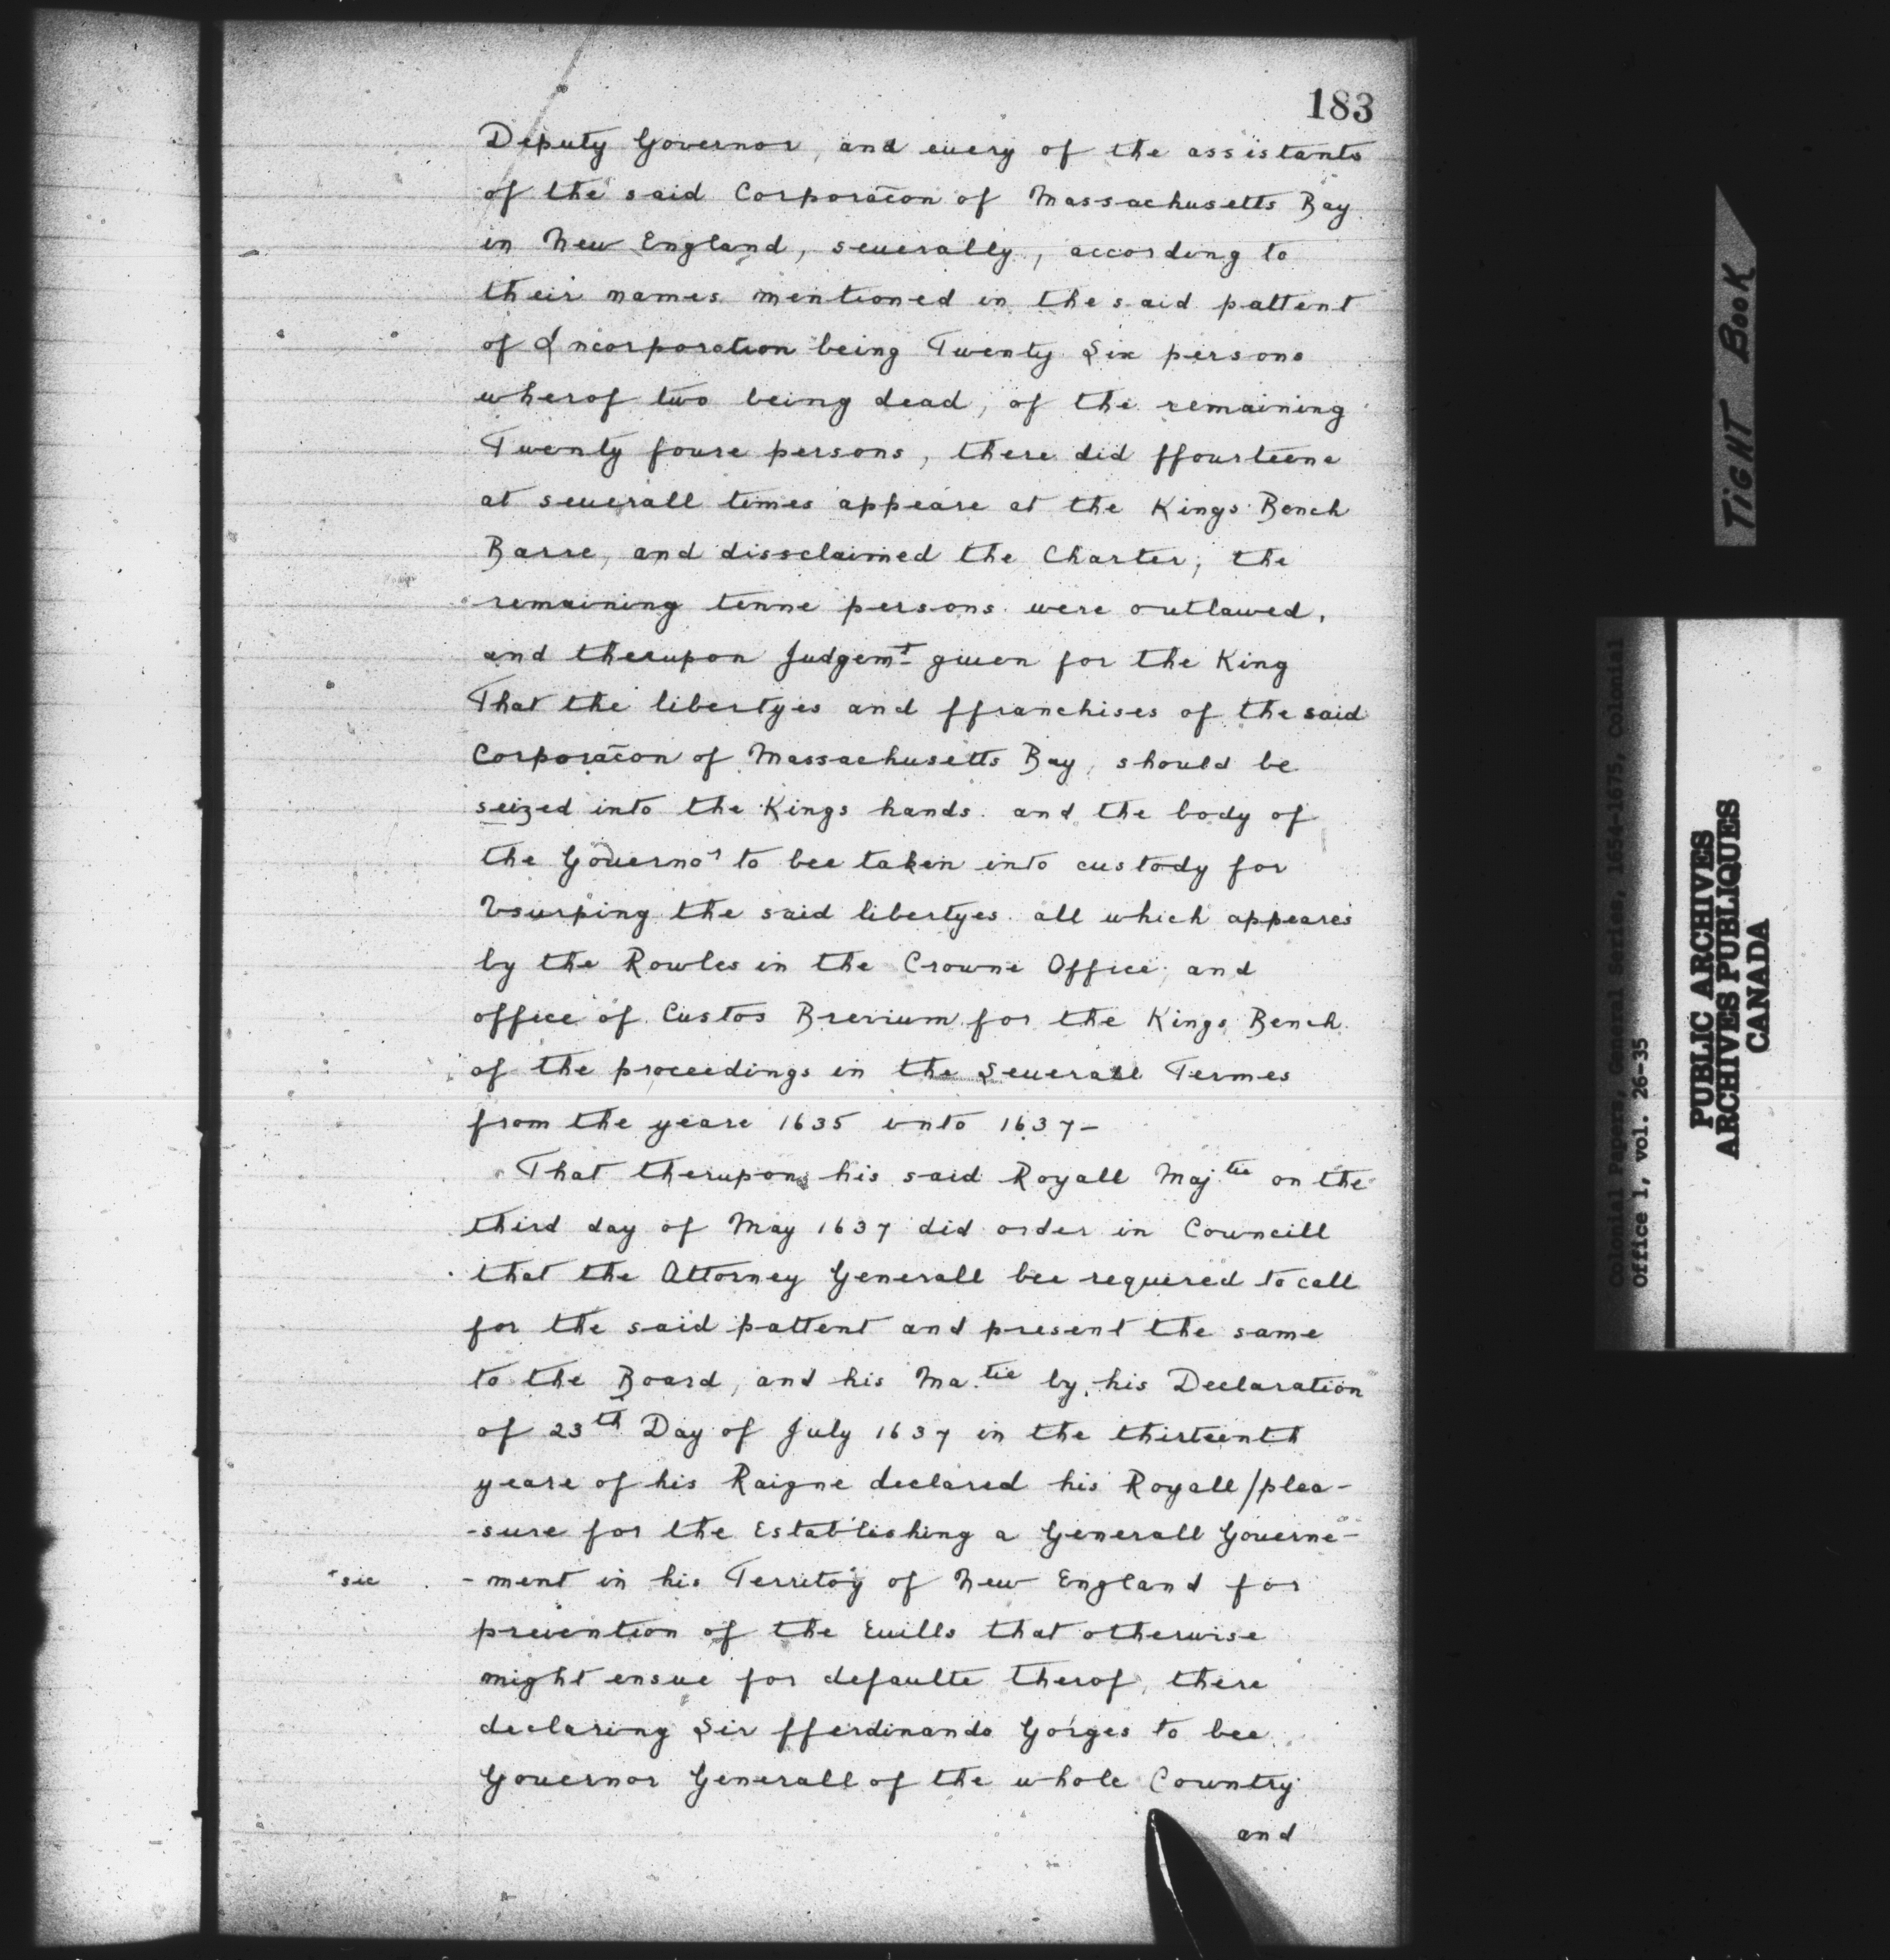 183
Deputy Governor, and euery of the assistants
of the said Corporacõn of Massachusetts Bay
in New England, seuerally, according to
their names mentioned in the said pattent
of Incorporation being Twenty Six persons
wherof two being dead, of the remaining
Twenty foure persons, there did ffourteene
at seuerall times appeare at the Kings Bench
Barre, and dissclaimed the Charter, the
remaining tenne persons were outlawed,
and therupon Judgemt given for the King
That the libertyes and ffranchises of the said
Corporacõn of Massachusetts Bay, should be
seized into the Kings hands. and the body of
the Gouernor to bee taken into custody for
Vsurping the said libertyes. all which appeares
by the Rowles in the Crowne Office, and
office of Custos Brevium for the Kings Bench
of the proceedings in the Seuerall Termes
from the yeare 1635 vnto 1637-
That therupon his said Royall Maj.tie on the
third day of May 1637 did order in Councill
that the Attorney Generall bee required to call
for the said pattent and present the same
to the Board, and his Ma.tie by his Declaration
of 23th Day of July 1637 in the thirteenth
yeare of his Raigne declared his Royall/plea-
-sure for the Establishing a Generall Gouerne-
*sic -ment in his Territoy of New England for
prevention of the Euills that otherwise
might ensue for defaulte therof, there
declaring Sir fferdinando Gorges to bee
Gouernor Generall of the whole Country
and
TIGHT BOOK
Colonial Papers, General Series, 1654-1675, Colonial
Office 1, vol. 26-35
PUBLIC ARCHIVES
ARCHIVES PUBLIQUES
CANADA